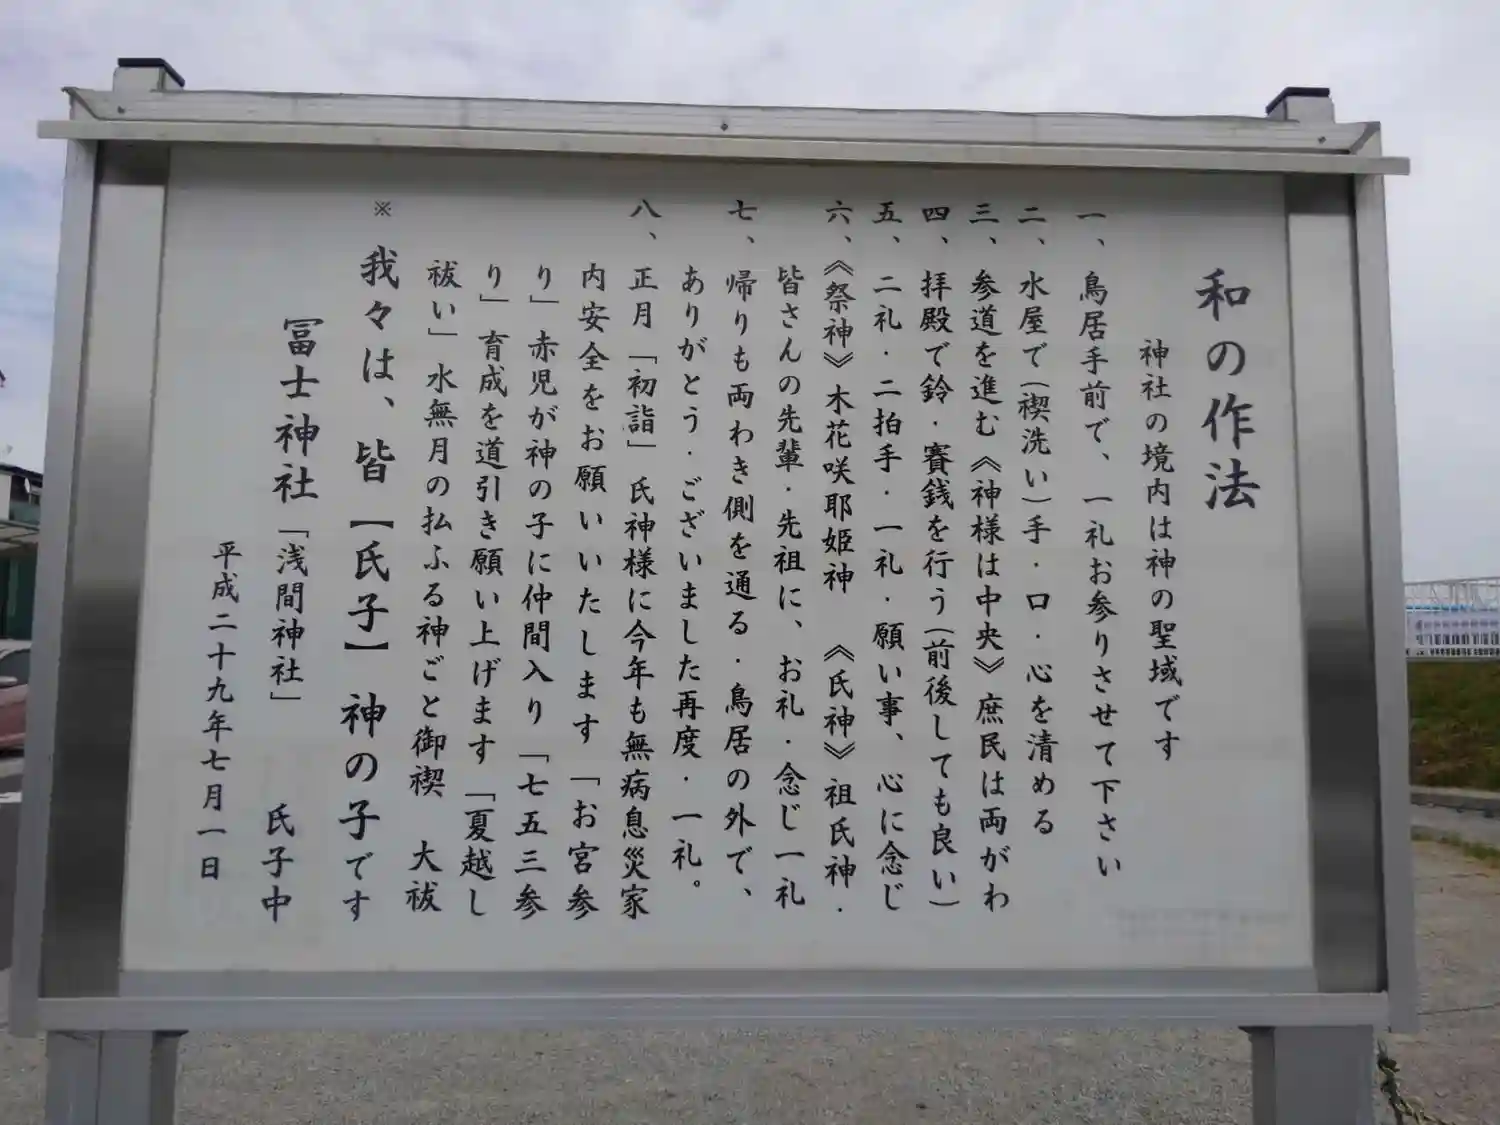 和の作法
神社の境内は神の聖域です
一、鳥居手前で、一礼お参りさせて下さい
二、水屋で(禊洗い)手・口・心を清める
三、参道を進む《神様は中央》庶民は両がわ
四、拝殿で鈴・賽銭を行う(前後しても良い)
五、二礼・二拍手・一礼・願い事、心に念じ
六、《祭神》木花咲耶姫神 《氏神》祖氏神・
皆さんの先輩・先祖に、お礼・念じ一礼
七、帰りも両わき側を通る・鳥居の外で、
ありがとう・ございました再度・一礼。
八、正月「初詣」氏神様に今年も無病息災家
内安全をお願いいたします「お宮参
り」赤児が神の子に仲間入り「七五三参
り」育成を道引き願い上げます「夏越し
祓い」水無月の払ふる神ごと御禊 大祓
※ 我々は、皆【氏子】神の子です
冨士神社「浅間神社」 氏子中
平成二十九年七月一日